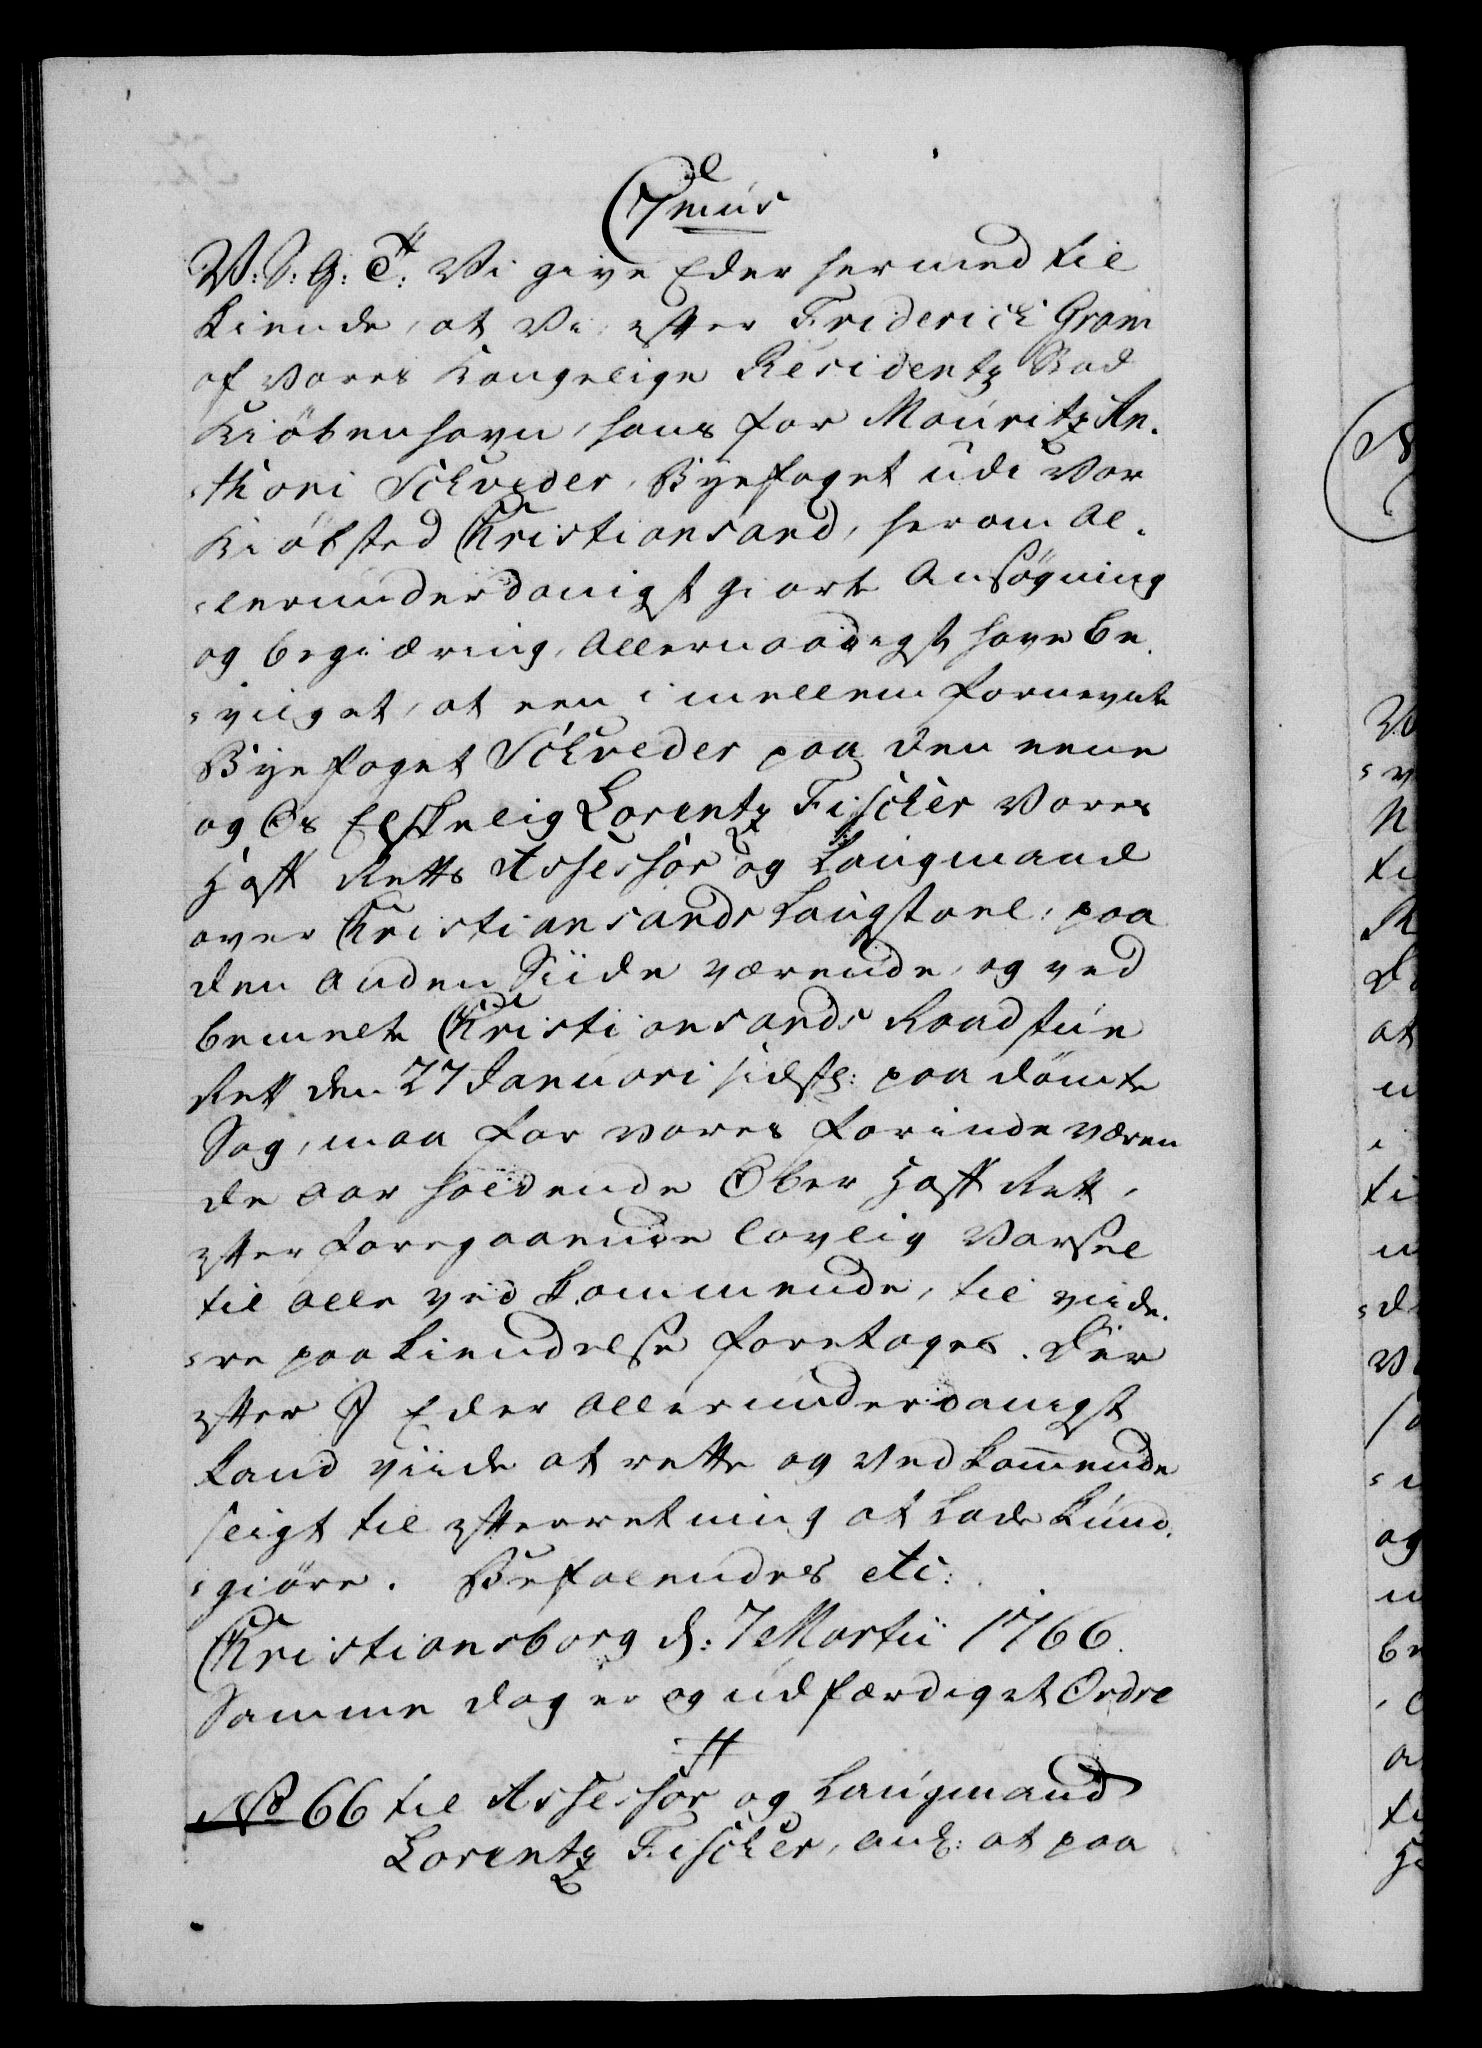 C7mus
V: S: G: T: Vi give Eder hermed til
kiende, at Vi, efter Friderich Gram
af Vores Kongelige Residentz Stad
Kiöbenhavn, hans for Mauritz An-
-thoni Schrøder, Byefoget udi Vor
Kiöbsted Christiansand, herom Al-
-lerunderdanigst giorte Ansögning
og begiæring, Allernaadigst have be-
-vilget, at een imellem fornevnte
Byefoget Schreder paa den eene
og Os Elskelig Lorentz Fischer Vores
Hoff Retts Assessor og Laugmand
over Christiansands Laugstoel, paa
den anden Siide værende, og ved
bemelte Christiansands Raadstue
Rett den 27 Januari sidstl: paadömte
Sag, maa for vores forindeværen
de aar holdende Ober Hoff Rett,
efter foregaaende lovlig Varsel
til alle ved kommende, til viide-
-re paakiendelse foretages. Der
efter I Eder allerunderdanigst
kand viide at rette og Vedkommende
sligt til efterretning at lade kund-
-giöre. Befalendes etc:
Christiansborg d: 7 Martii 1766.
Samme dag er og udfærdiget Ordre
No 66 til Assessor og Laugmand
Lorentz Fischer, anl: at paa